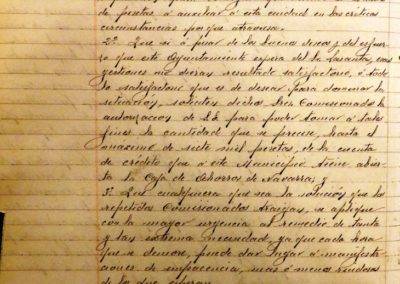 de pesetas á auxiliar á esta ciudad en las criticas
circunstancias porque atraviesa.
2º Que si á pesar de los buenos deseos y del esfuer
zo que este Ayuntamiento espera del Sr. Lasanta, sus
gestiones no dieran resultado satisfactorio, ó todo
lo satisfactorio que es de desear para dominar la
situación, soliciten dichos Sres Comisionados la
autorización de S.E. para poder tomar á tales
fines la cantidad que se precise, hasta el
maximo de siete mil pesetas, de la cuenta
de crédito que á este Municipio tiene abier
ta la Caja de Ahorros de Navarra; y
3º Que cualquiera que sea la solución que los
repetidos Comisionados traigan, se aplique
con la mayor urgencia al remedio de tanta
y tan extrema necesidad, ya que cada hora
que se demore, puede dar lugar á manifesta
ciones de impaciencia, mas ó menos ruidosas
de los que esperan